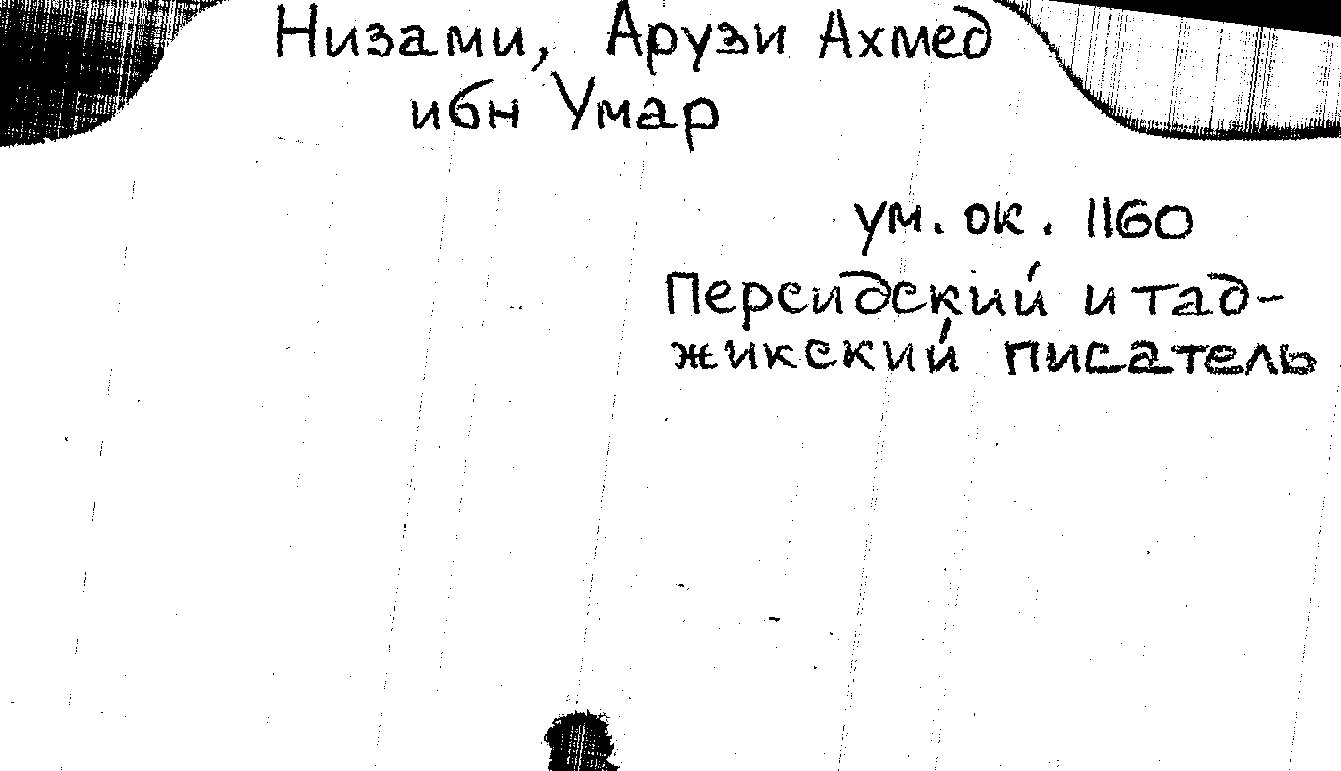 Низами, Арузи Ахмед
ибн Умар
ум. ок. 1160
Персидский и тад-
жикский писатель